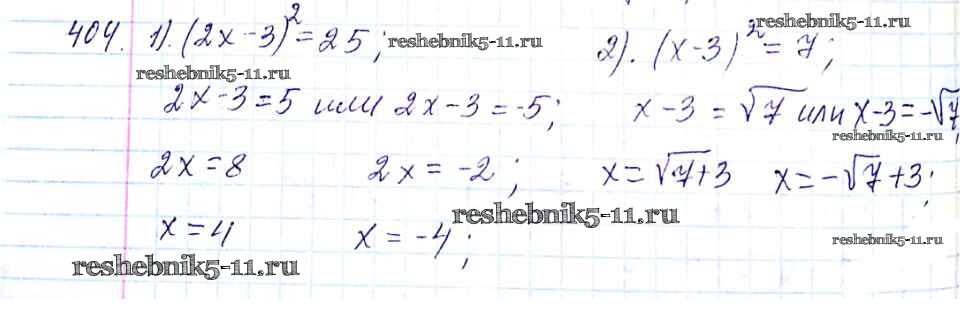 404. 1). (2x-3)²=25; reshebnik5-11.ru 2). (x-3)²=7; reshebnik5-11.ru
reshebnik5-11.ru
2x-3=5 или 2x-3=-5; x-3=√7 или x-3=-√7;
reshebnik5-11.ru
2x=8 2x=-2; x=√7+3 x=-√7+3;
reshebnik5-11.ru
x=4 x=-4; reshebnik5-11.ru
reshebnik5-11.ru